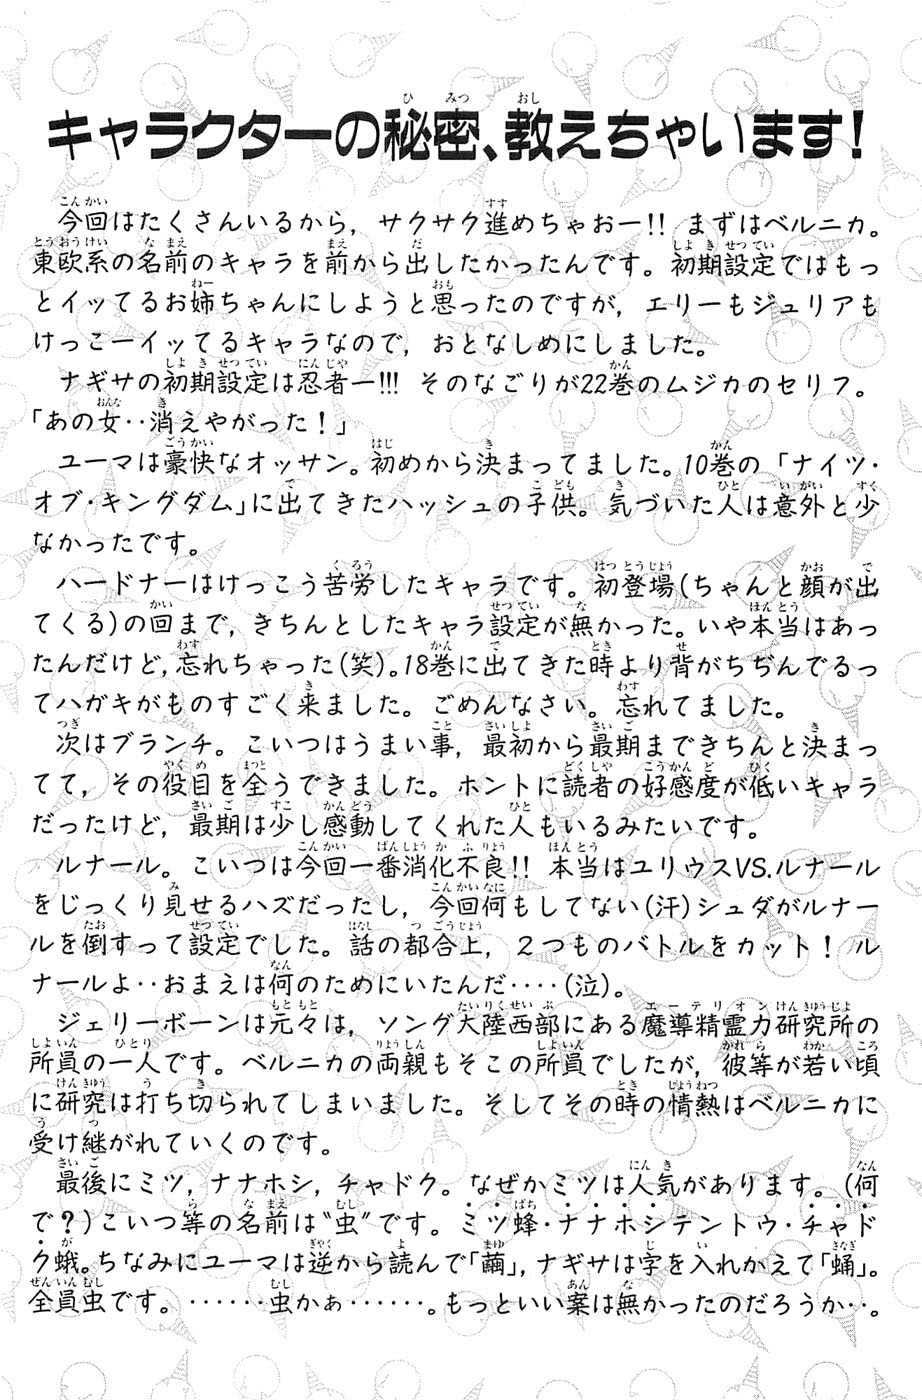 キャラクターの秘密、教えちゃいます!
今回はたくさんいるから，サクサク進めちゃおー!! まずはベルニカ。
東欧系の名前のキャラを前から出したかったんです。初期設定ではもっ
とイッてるお姉ちゃんにしようと思ったのですが，エリーもジュリアも
けっこーイッてるキャラなので，おとなしめにしました。
ナギサの初期設定は忍者ー!!! そのなごりが22巻のムジカのセリフ。
「あの女‥消えやがった!」
ユーマは豪快なオッサン。初めから決まってました。10巻の「ナイツ・
オブ・キングダム」に出てきたハッシュの子供。気づいた人は意外と少
なかったです。
ハードナーはけっこう苦労したキャラです。初登場(ちゃんと顔が出
てくる)の回まで，きちんとしたキャラ設定が無かった。いや本当はあっ
たんだけど，忘れちゃった(笑)。18巻に出てきた時より背がちぢんでるっ
てハガキがものすごく来ました。ごめんなさい。忘れてました。
次はブランチ。こいつはうまい事，最初から最期まできちんと決まっ
てて，その役目を全うできました。ホントに読者の好感度が低いキャラ
だったけど，最期は少し感動してくれた人もいるみたいです。
ルナール。こいつは今回一番消化不良!! 本当はユリウスVS.ルナール
をじっくり見せるハズだったし，今回何もしてない(汗)シュダがルナー
ルを倒すって設定でした。話の都合上，2つものバトルをカット! ル
ナールよ‥おまえは何のためにいたんだ‥‥(泣)。
ジェリーボーンは元々は，ソング大陸西部にある魔導精霊力研究所の
所員の一人です。ベルニカの両親もそこの所員でしたが，彼等が若い頃
に研究は打ち切られてしまいました。そしてその時の情熱はベルニカに
受け継がれていくのです。
最後にミツ，ナナホシ，チャドク。なぜかミツは人気があります。(何
で?)こいつ等の名前は"虫"です。ミツ蜂・ナナホシテントウ・チャド
ク蛾。ちなみにユーマは逆から読んで「繭」，ナギサは字を入れかえて「蛹」。
全員虫です。‥‥‥虫かぁ‥‥‥。もっといい案は無かったのだろうか‥。